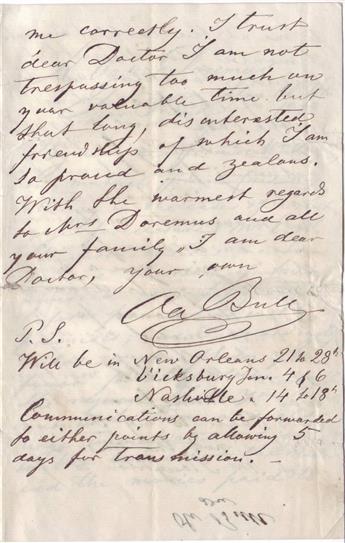 me correctly. I trust
dear Doctor I am not
trespassing too much on
your valuable time. but
that long, disinterested
friendship of which I am
so proud and zealous.
With the warmest regards
to Mrs Doremus and all
your family, I am dear
Doctor, your own
Ole Bull
P.S.
Will be in New Orleans 21 to 28th
Vicksburg Jan. 4 & 6
Nashville. 14 to 18th
Communications can be forwarded
to either points by allowing 5
days for transmission. -
Ole Bull